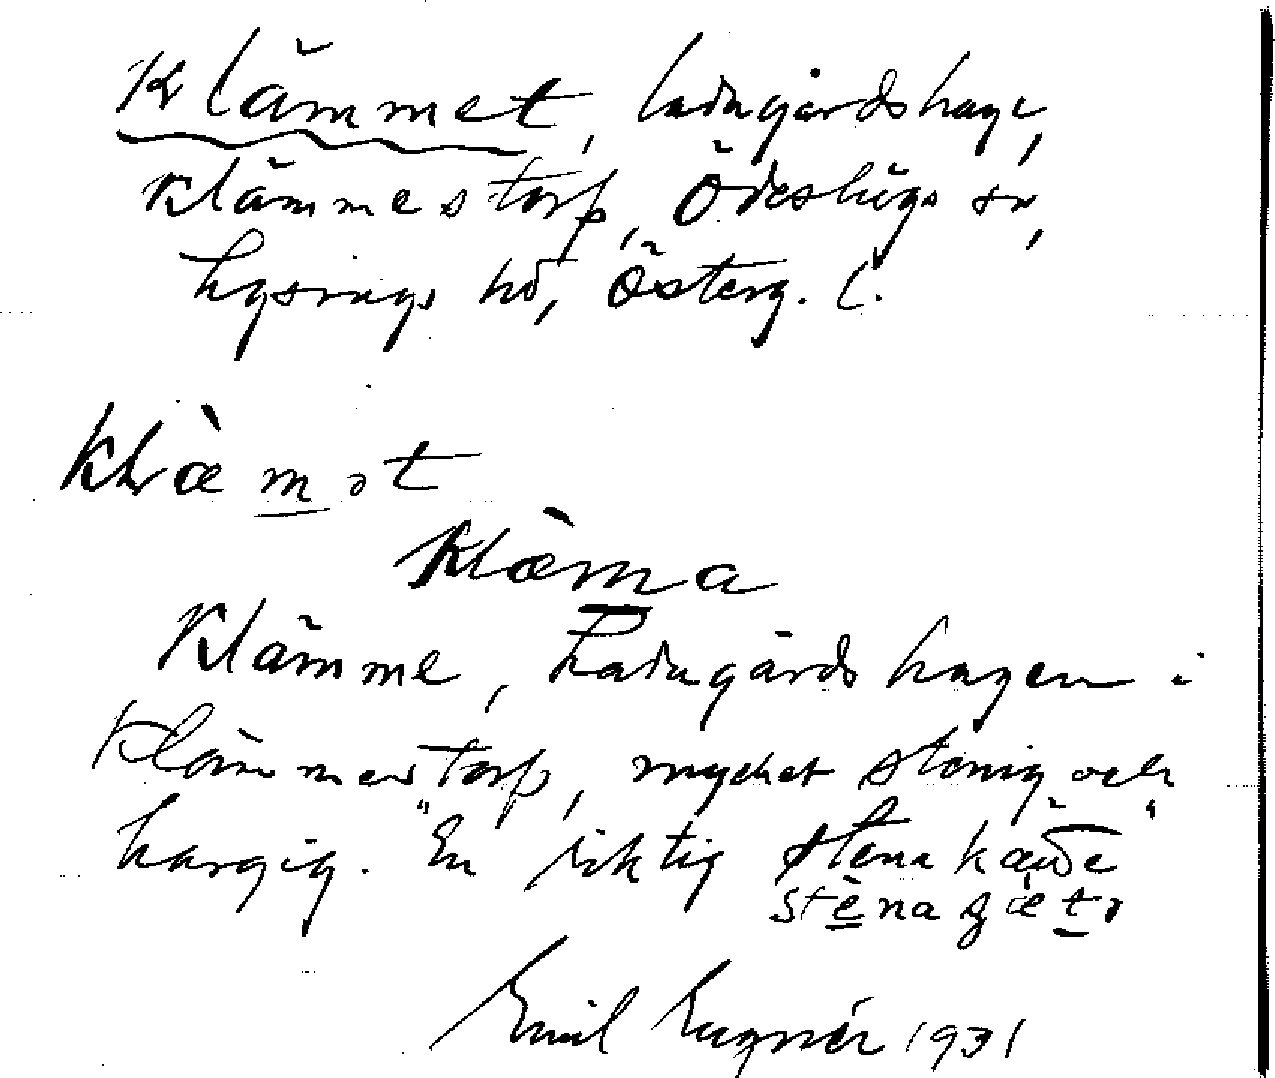 Klämmet, ladugårdshage,
Klämmestorp, Ödeshögs sn,
Lysings hd, Österg. l.
Klæmət
Klæma
Klämme, Ladugårdshagen i
Klämmestorp, mycket stenig och
hargig. "En riktig stena
stèna
Emil 1931